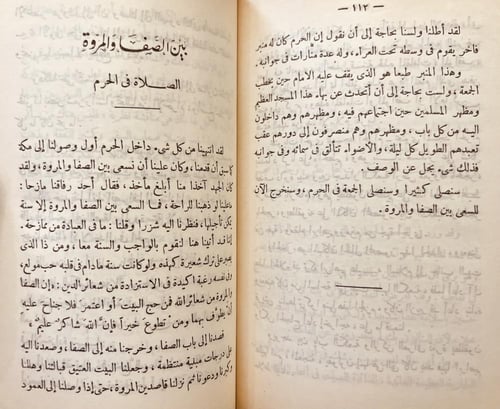 — ١١٢ —
لقد أطلنا ولسنا بحاجة إلى أن نقول إن الحرم كان له منبر
فاخر يقوم فى وسطه تحت العراء، وله عدة منارات فى جوانبه.
وهذا المنبر طبعا هو الذى يقف عليه الامام حين يخطب
الجمعة، ولست بحاجة إلى أن أتحدث عن بهاء هذا المسجد العظيم
ومظهر المسلمين حين اجتماعهم فيه، ومظهرهم وهم داخلون
اليه من كل باب، ومظهرهم وهم منصرفون إلى دورهم عقب
تعبدهم الطويل كل ليلة، والأضواء تتألق فى سمائه وفى جوانبه
فذلك شىء يجل عن الوصف.
سنصلى كثيرا وسنصلى الجمعة فى الحرم، وسنخرج الآن
للسعى بين الصفا والمروة.
بين الصفا والمروة
الصلاة فى الحرم
لقد انتهينا من كل شىء داخل الحرم أول وصولنا إلى مكة
أن فعلناه، وكان علينا أن نسعى بين الصفا والمروة، ولقد
كان الجهد آخذا منا أبلغ مأخذ، فقال أحد رفاقنا مازحا:
لو ذهبنا للراحة، فما السعى بين الصفا والمروة إلا سنة
يمكن تأجيلها، فنظرنا اليه شزرا وقلنا: ما فى العبادة من ممازحة.
لقد أتينا هنا لنقوم بالواجب والسنة معا، ومن ذا الذى
يصبر على ترك شعيرة كهذه ولو كانت سنة مادام فى قلبه حب مولع،
وفى نفسه رغبة أكيدة فى الاستزادة من شعائر الدين: «إن الصفا
والمروة من شعائر الله فمن حج البيت أو اعتمر فلا جناح عليه
أن يطوف بهما ومن تطوع خيراً فإن الله شاكر عليم».
قصدنا إلى باب الصفا، وخرجنا منه إلى الصفا، وصعدنا اليه
على درجات مبنية منتظمة، وجعلنا البيت العتيق قبالتنا وهللنا
وكبرنا ودعونا ثم نزلنا قاصدين المروة، حتى إذا وصلنا إلى العمود